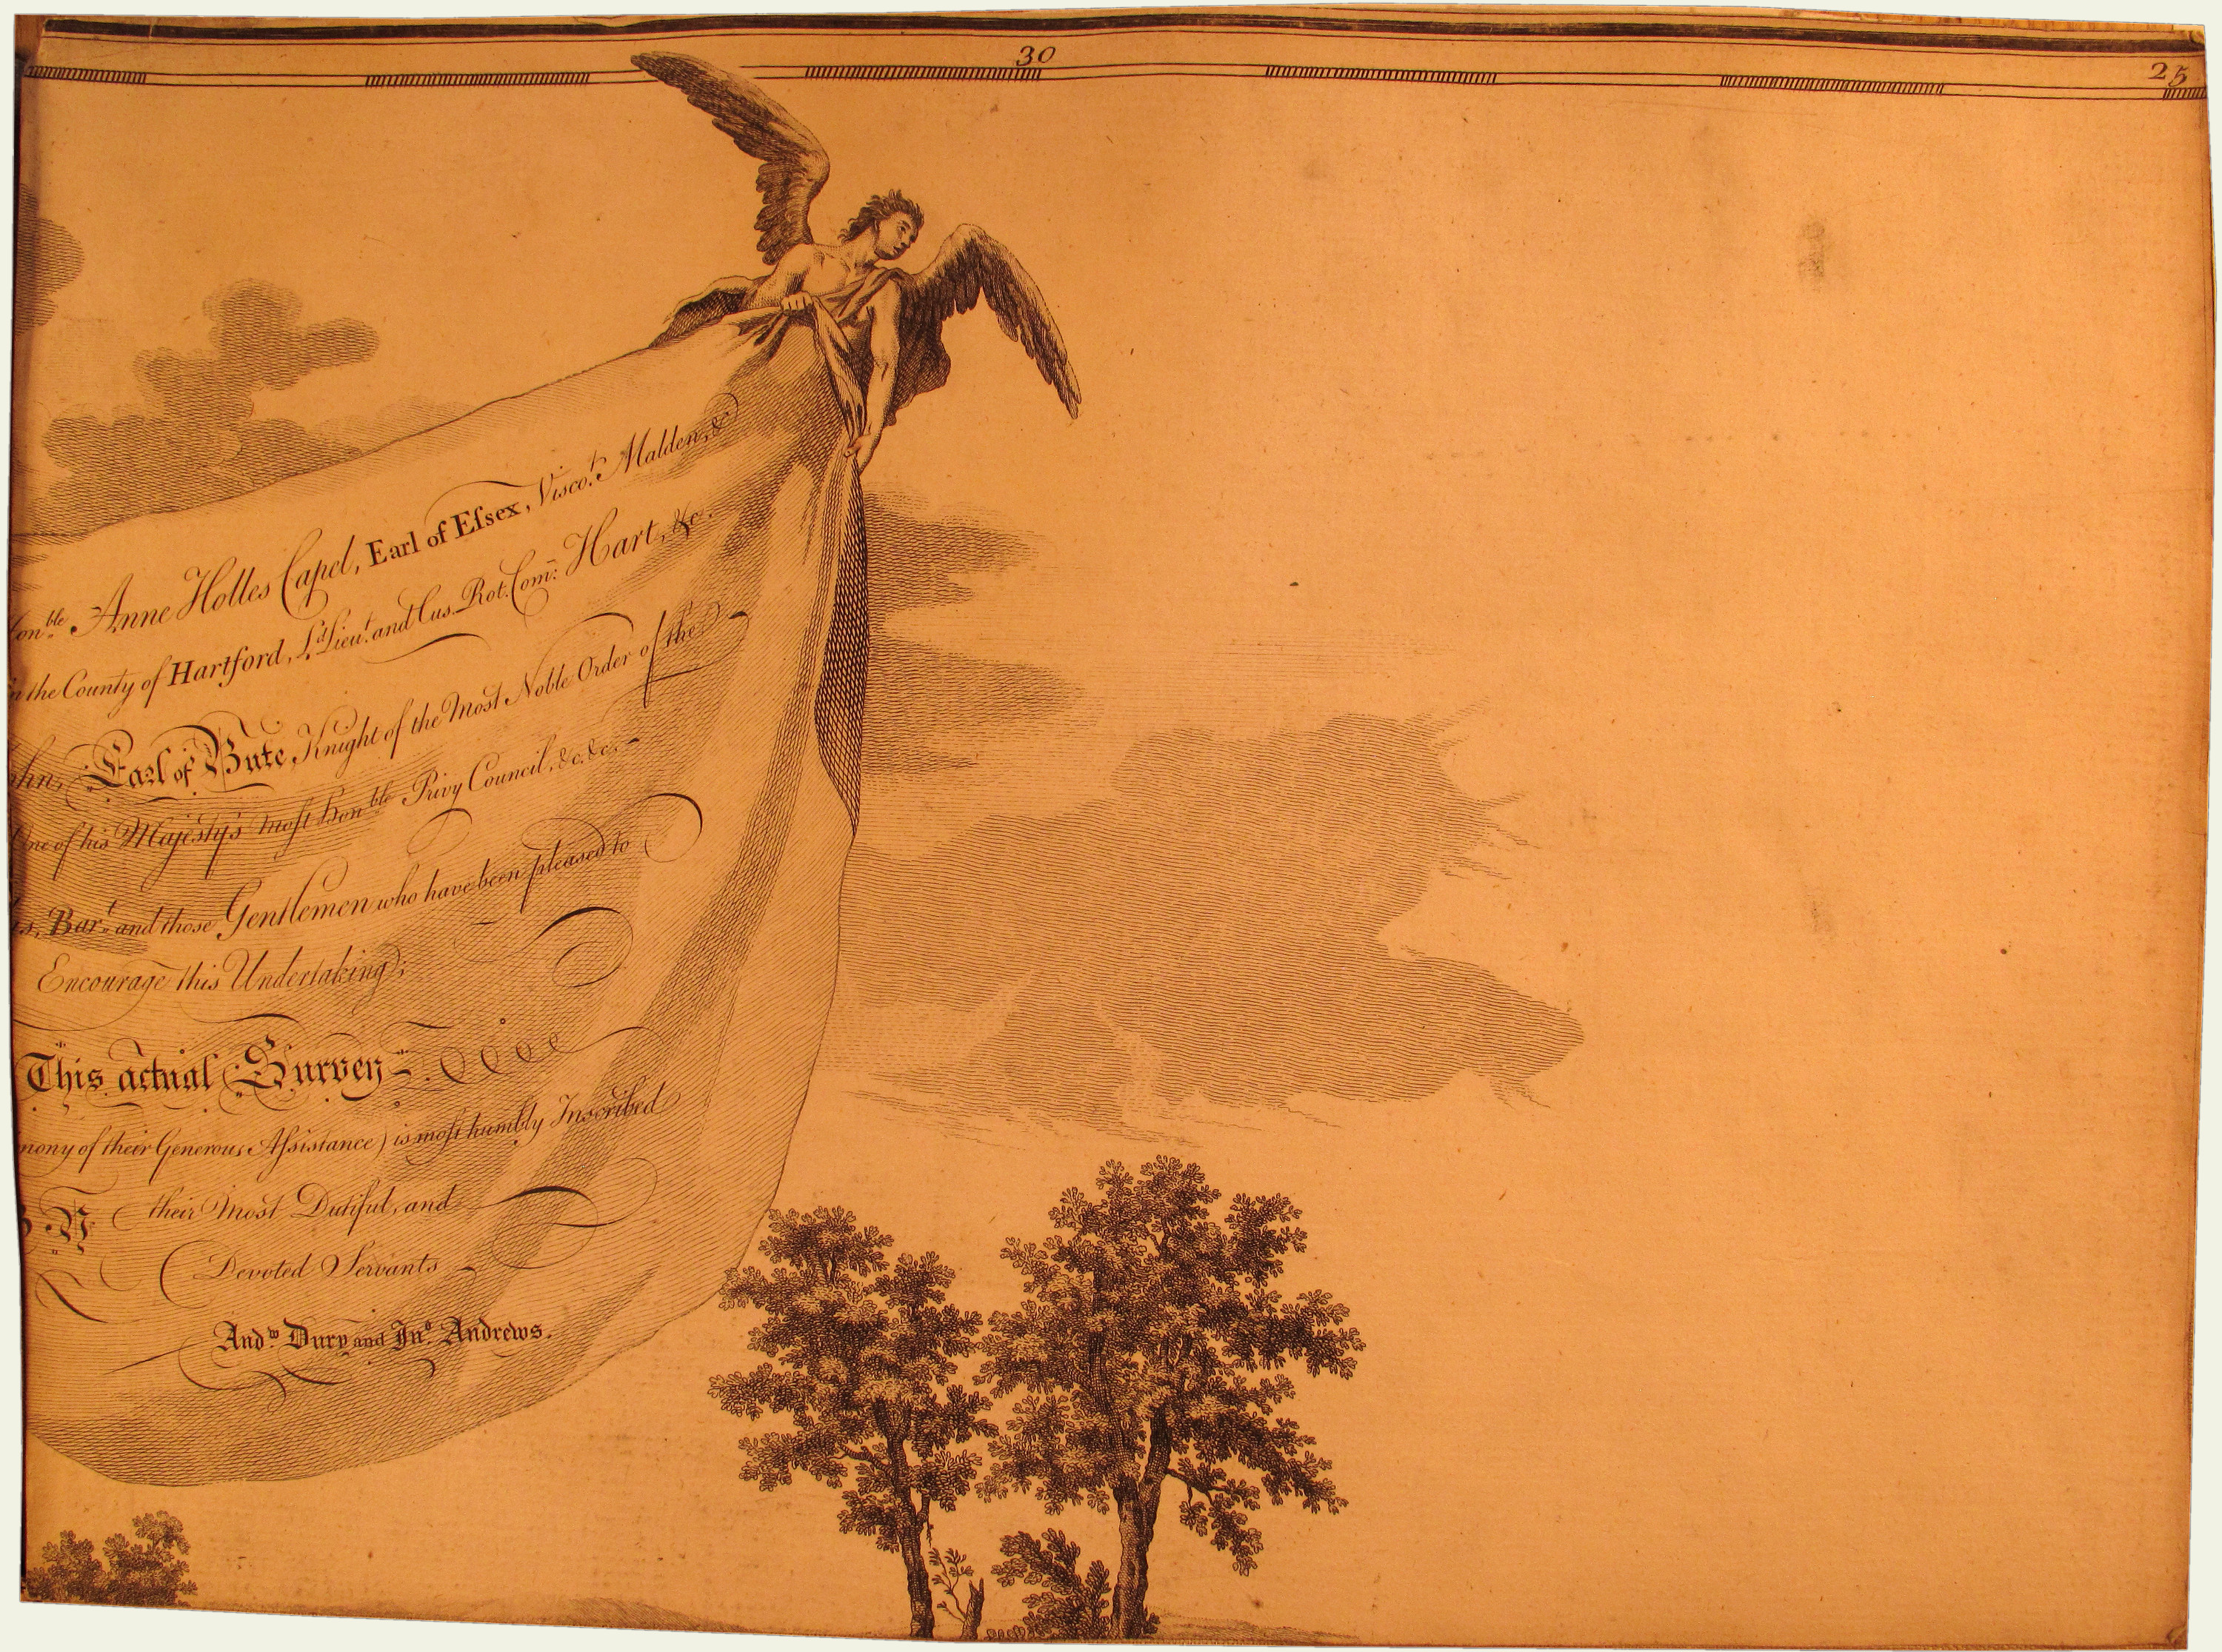 30
25
Honble Anne Holles Capel, Earl of Eſsex, Viscot. Malden, &c
in the County of Hartford, Ld. Lieut. and Cus. Rot. Com: Hart, &c.
Earl of Bute, Knight of the Most Noble Order of the
One of his Majesty's most Honble Privy Council, &c. &c.
Bart. and those Gentlemen who have been pleased to
Encourage this Undertaking;
This actual Survey
of their Generous Aſsistance) is most humbly Inscribed
their Most Dutiful, and
Devoted Servants
Andw. Dury and Jno. Andrews.